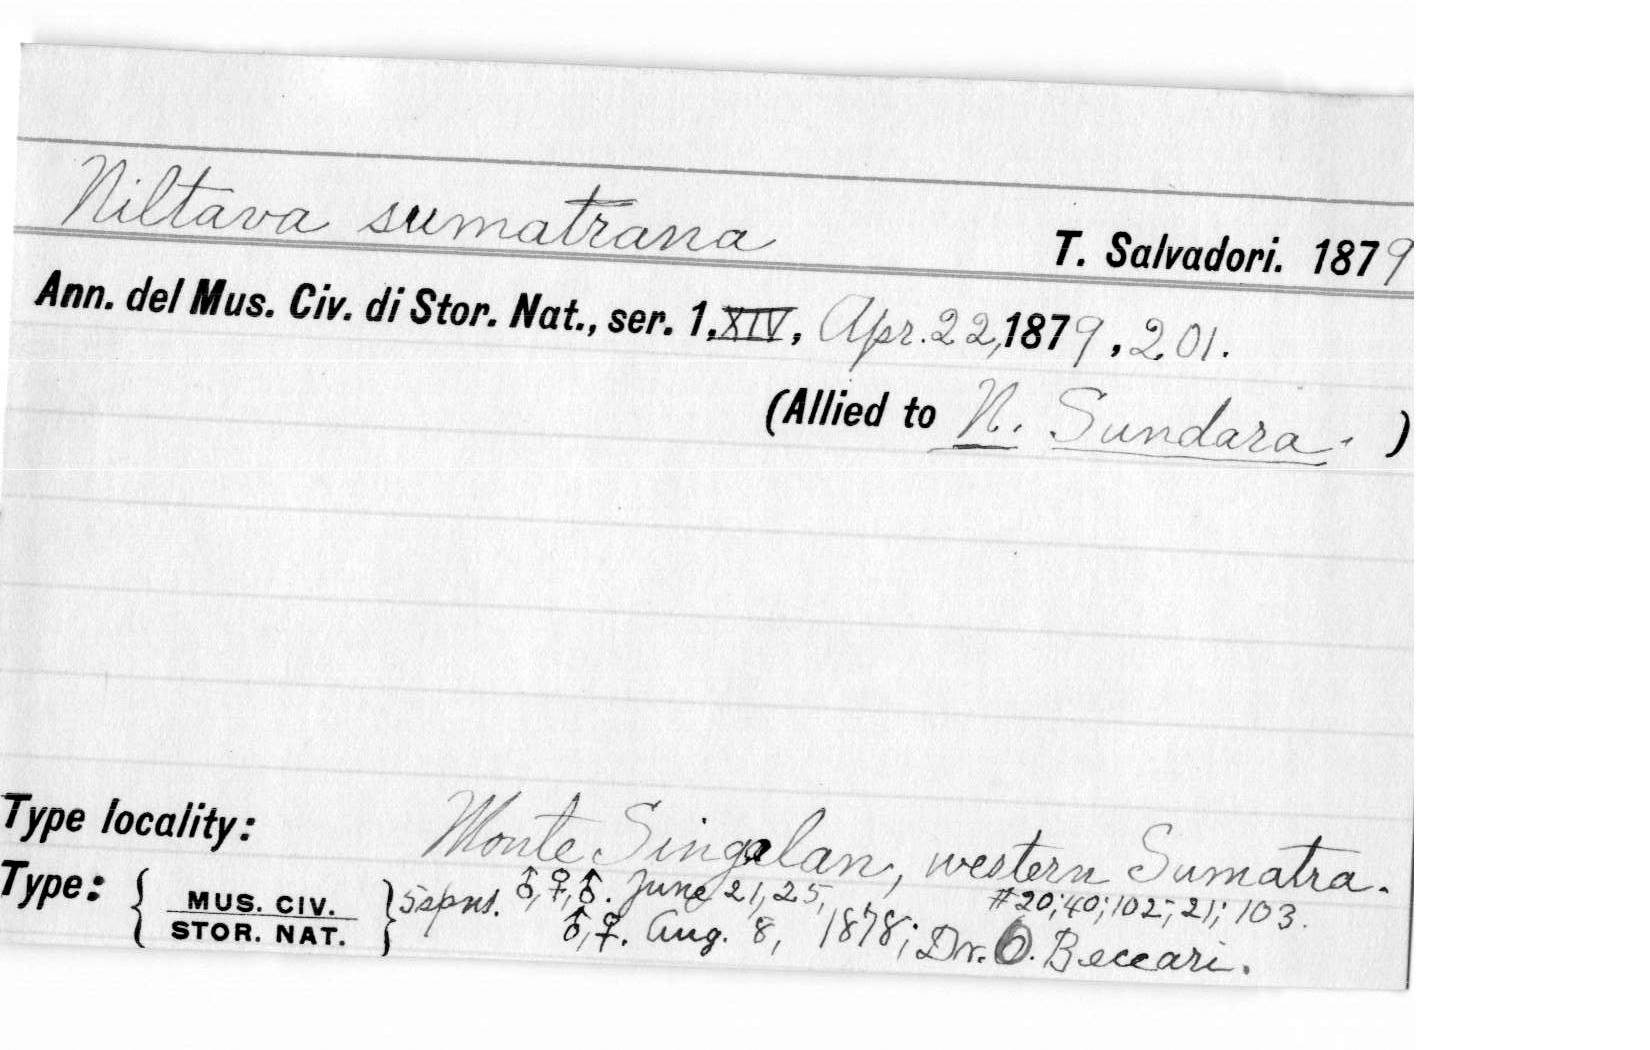 Niltava sumatrana T. Salvadori. 1879
Ann. del Mus. Civ. di Stor. Nat., ser. 1, XIV, Apr. 22, 1879, 201.
(Allied to N. Sundara. )
Type locality: Monte Singalan, western Sumatra.
Type: { MUS. CIV. STOR. NAT. } 5 spns. ♂,♀,♂. June 21, 25, #20; 40; 102; 21; 103.
♂,♀. Aug. 8, 1878; Dr. O. Beccari.